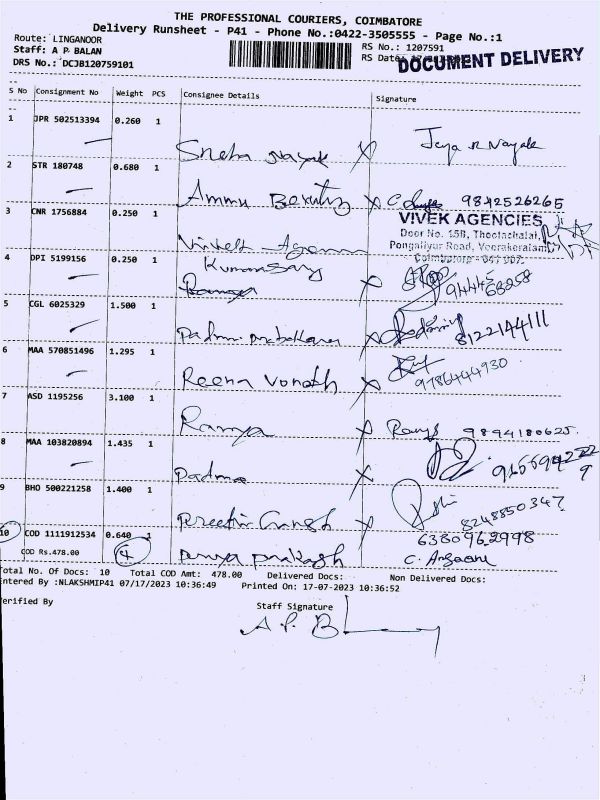 THE PROFESSIONAL COURIERS, COIMBATORE
Delivery Runsheet - P41 - Phone No.:0422-3505555 - Page No.:1
Route: LINGANOOR
Staff: A P BALAN
DRS No.: DCJB120759101
RS No.: 1207591
RS Date
DOCUMENT DELIVERY
S No Consignment No Weight PCS Consignee Details Signature
1 JPR 502513394 0.260 1
Sneha Nayak X Jaya R Nayak
2 STR 180748 0.680 1
Ammu X 9842526265
3 CNR 1756884 0.250 1
VIVEK AGENCIES
Door No. 15B, Theelachalai,
Pongaliyur Road, Veerakeralam
Coimbatore - 641 007.
4 DPI 5199156 0.250 1
X 94445 68258
5 CGL 6025329 1.500 1
Padma X 8122144111
6 MAA 570851496 1.295 1
Reena X 9786444930
7 ASD 1195256 3.100 1
Ramya X 9894180625.
8 MAA 103820894 1.435 1
Padma X
9 BHO 500221258 1.400 1
Preethi X 8248850347
10 COD 1111912534 0.640 1
6380962998
COD Rs.478.00 4
prakash C.
Total No. Of Docs: 10 Total COD Amt: 478.00 Delivered Docs: Non Delivered Docs:
Entered By :NLAKSHMIP41 07/17/2023 10:36:49 Printed On: 17-07-2023 10:36:52
Verified By
Staff Signature
A. P. B